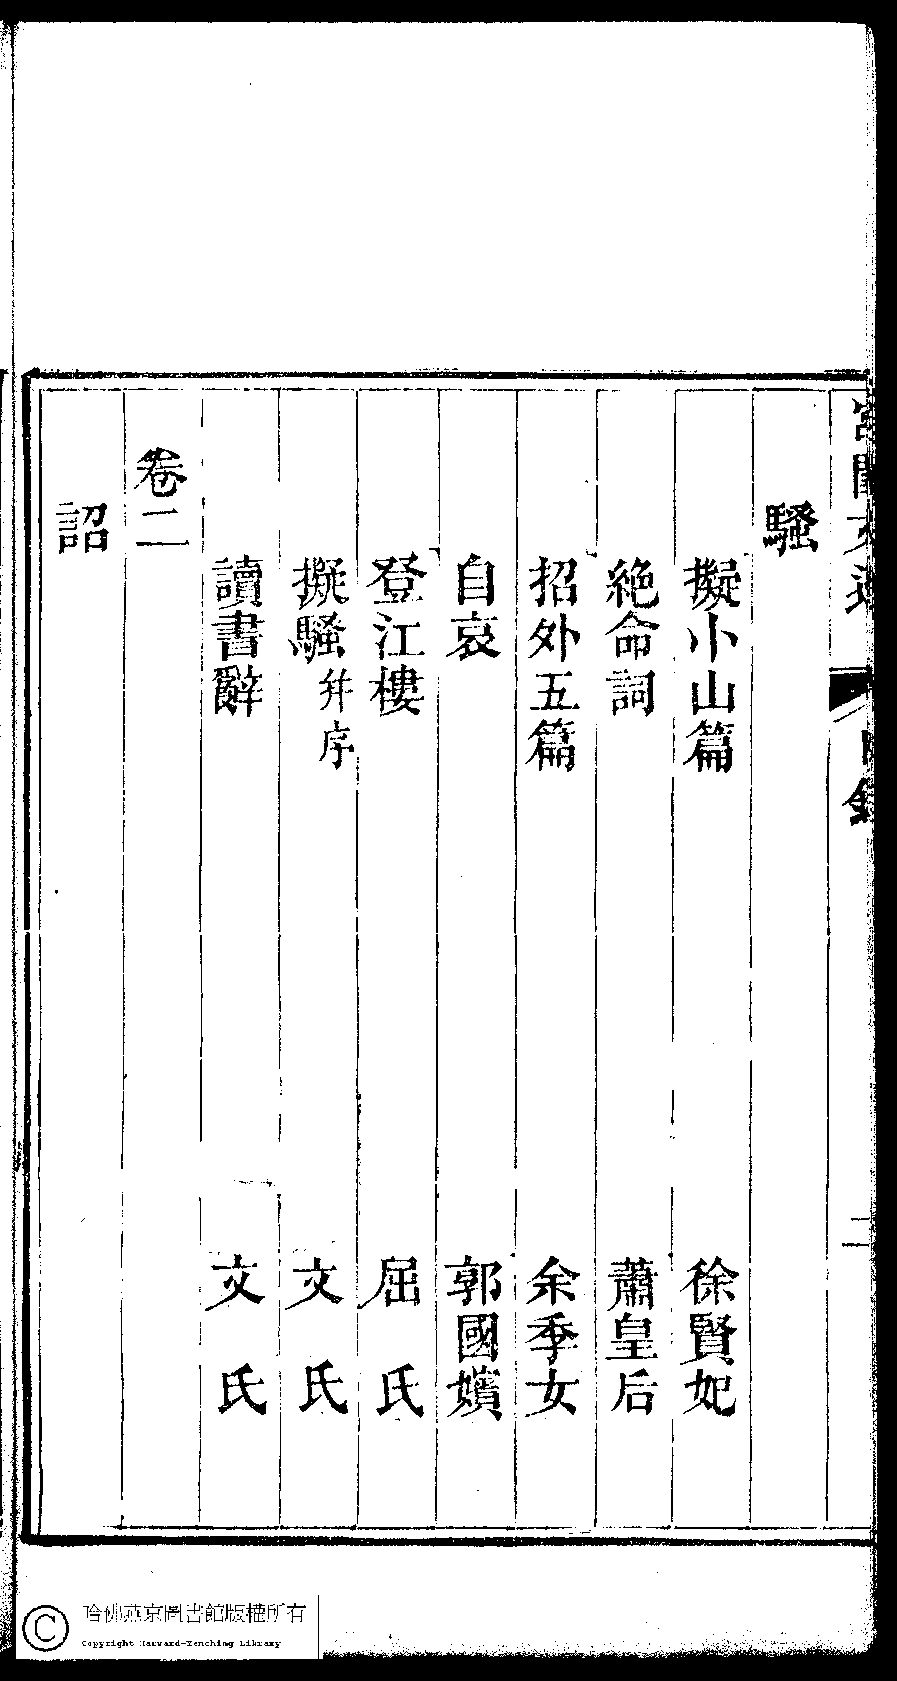 宮閨文選 目錄 二
騷
擬小山篇 徐賢妃
絶命詞 蕭皇后
招外五篇 余季女
自哀 郭國嬪
登江樓 屈氏
擬騷并序 文氏
讀書辭 文氏
卷二
詔
哈佛燕京圖書館版權所有
Copyright Harvard-Yenching Library